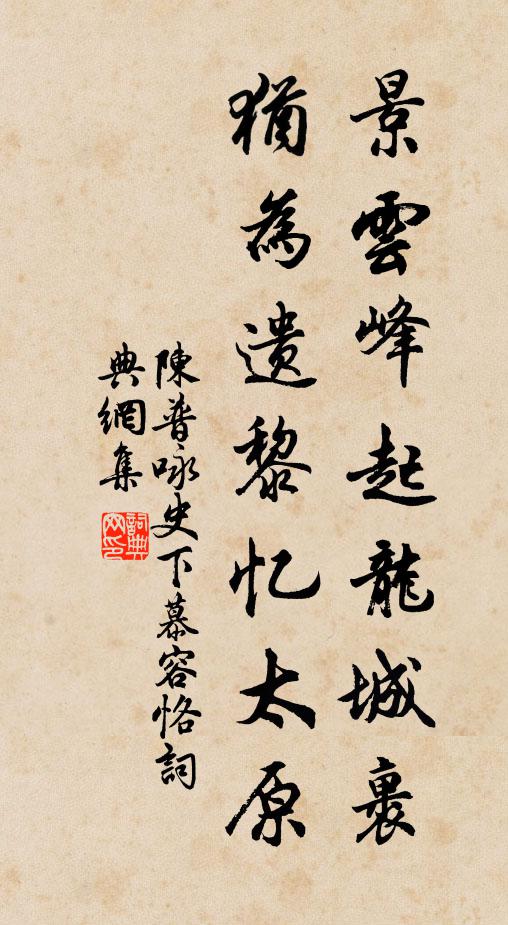 景雲峰起龍城裏
猶為遺黎忆太原
陳普咏史下慕容恪詞
典網集
詞典
网印